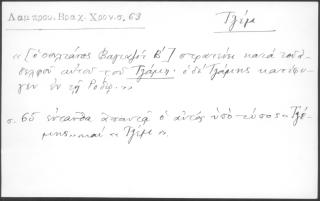 Λαμπρου. Βραχ. Χρον. σ. 63
Τζέμ
« [ὁ σουλτάνος Βαγιαζὴτ Β΄] στρατεύει κατὰ τοῦ ἀ-
δελφοῦ αὐτοῦ τοῦ Τζάμη· ὁ δὲ Τζάμης κατέφυ-
γεν ἐν τῇ Ρόδῳ. »
σ. 65 ἐνταῦθα ἀπαντᾷ ὁ αὐτὸς ὑπὸ τύπους « Τζέ-
μης » καὶ « Τζέμ ».